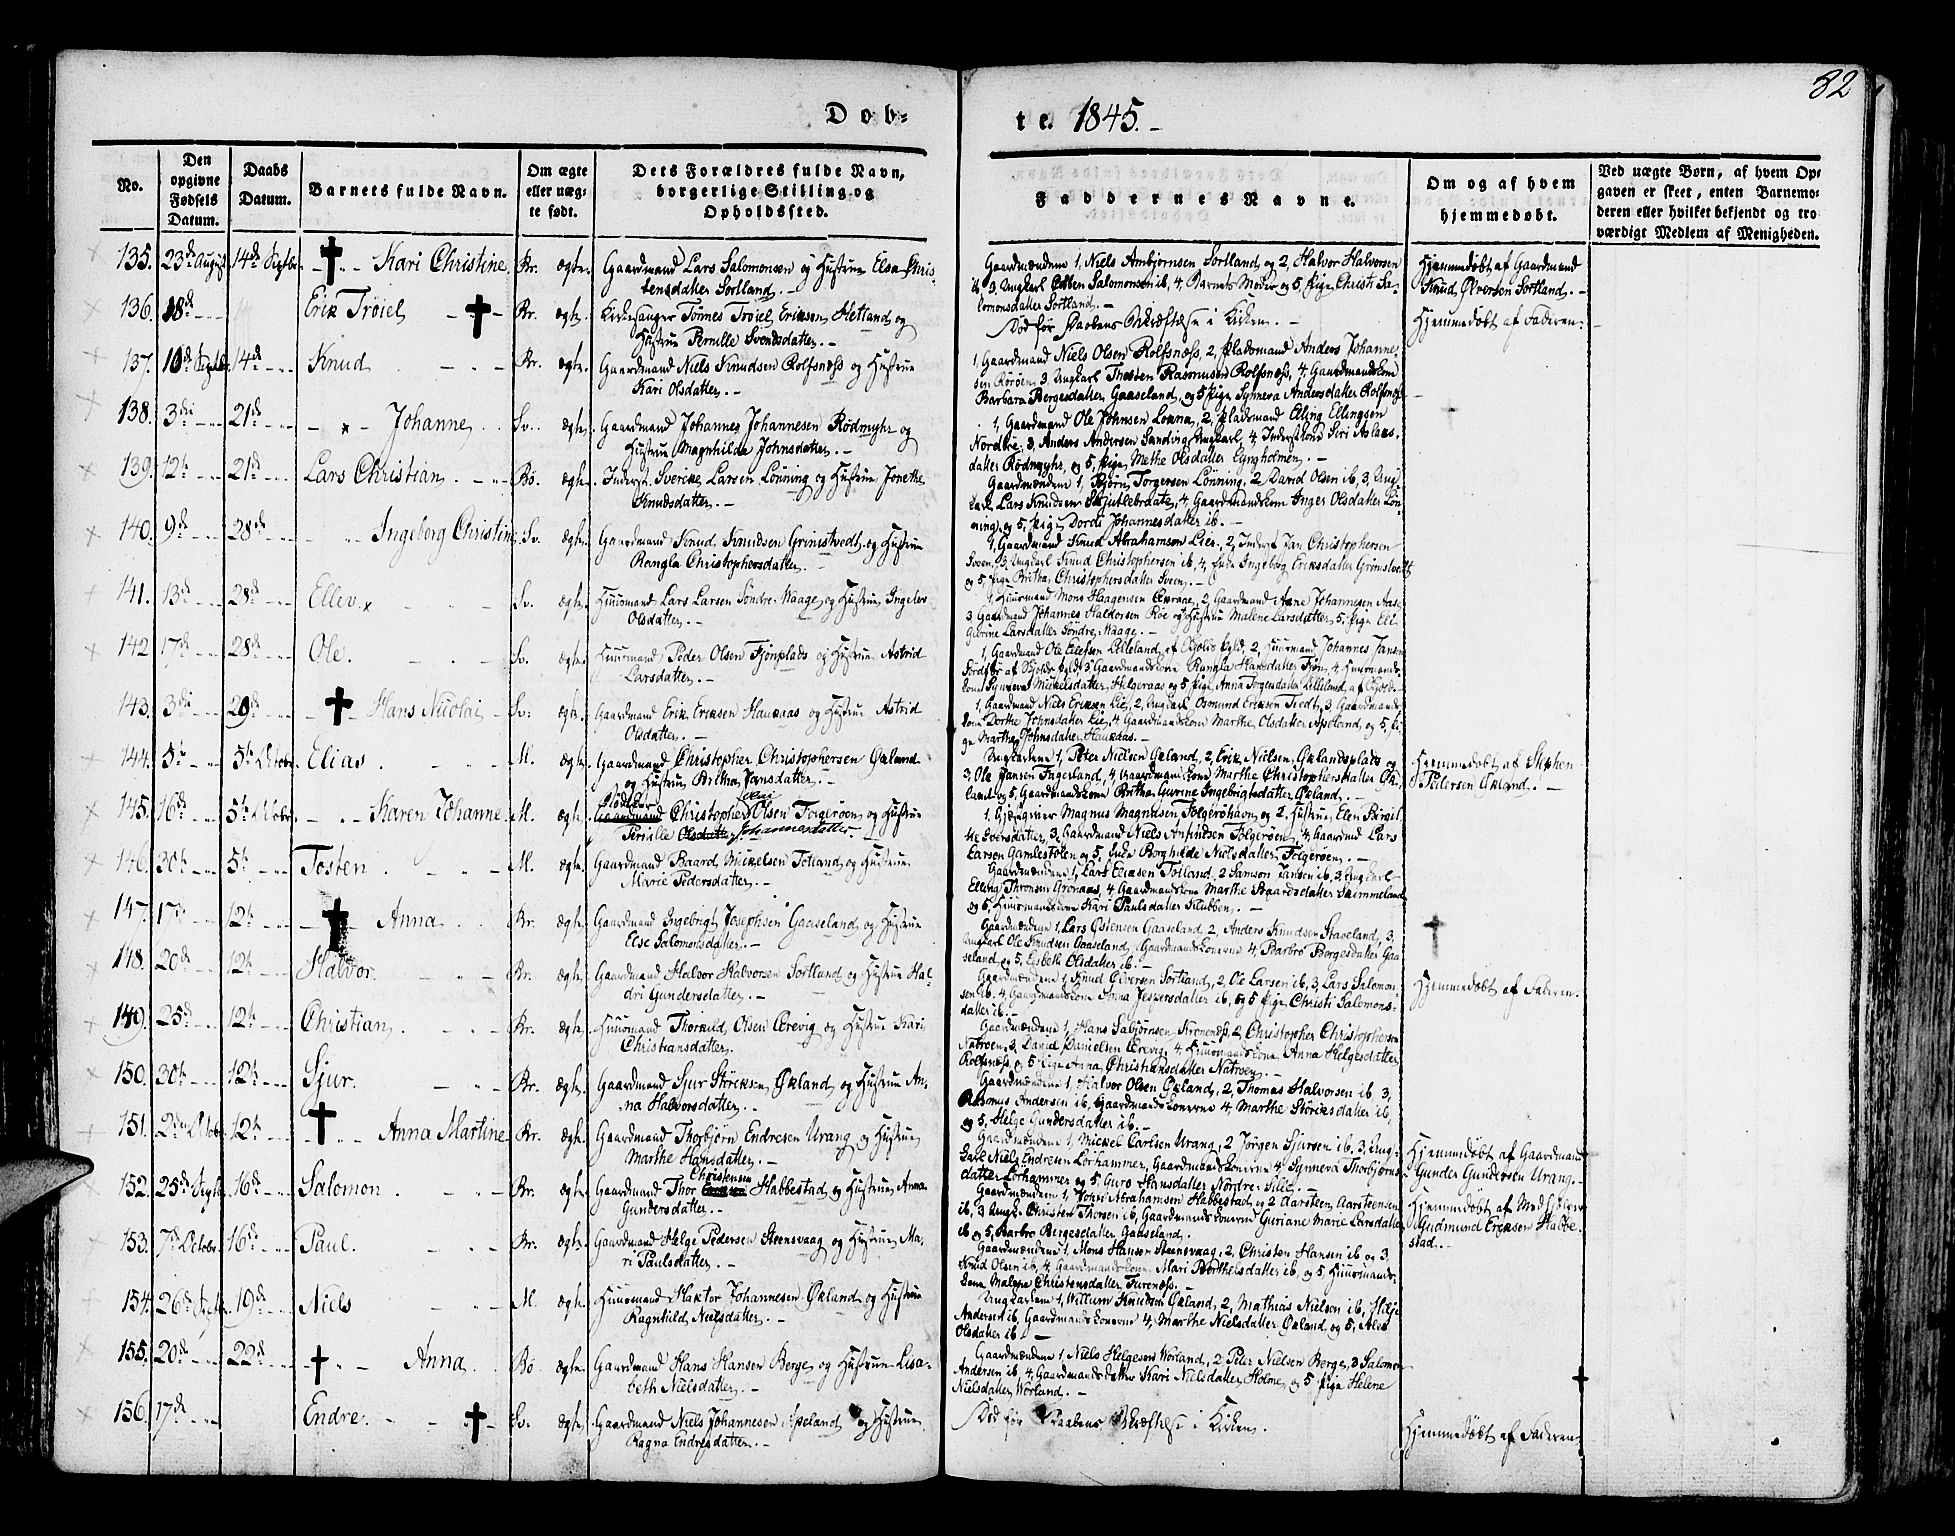 82
Døb-
te. 1845.-
No.
Den opgivne Fødsels Datum.
Daabs Datum.
Barnets fulde Navn.
Om ægte eller uæg-
te født.
Dets Forældres fulde Navn,
borgerlige Stilling og
Opholdssted.
Faddernes Navne.
Om og af hvem
hjemmedøbt.
Ved uægte Børn, af hvem Op-
gaven er skeet, enten Barnemo-
deren eller hvilket bekjendt og tro-
værdigt Medlem af Menigheden.
135. 23de August 14de Septbr Kari Christine Br. ægte. Gaardmand Lars Salomonsen og Hustrue Elsa Chris-
tensdatter Sortland.-
Gaardmændene 1, Niels Ambjørnsen Sortland og 2, Halvor Halvorsen
ib, 3, Ungkarl Salomonsen ib, 4, Barnets Moder og 5, Pige Christi Sa-
lomonsdatter Sortland.-
Hjemmedøbt af Gaardmand
Knud Øversen Sortland.-
136. 18de Erik Trøiel Br. ægte. Kirkesanger Tønnes Trøiel Eriksen Hetland og
Hustrue Pernille Svendsdatter.-
Død før Daabens Bekræftelse i Kirken.-
Hjemmedøbt af Faderen.
137. 10de Septbr 14de Knud Br. ægte. Gaardmand Niels Knudsen Rolfsnæss og Hustrue
Kari Olsdatter.-
1, Gaardmand Niels Olsen Rolfsnæss, 2, Pladsmand Anders Johanne-
sen Rørøen 3, Ungkarl Thosten Rasmusen Rolfsnæss, 4, Gaardmandskone
Barbara Bergesdatter Gaaseland, og 5 Pige Synneva Andersdatter Rolfsnæss
138. 3die 21de Johanne Sv. ægte. Gaardmand Johannes Johannesen Rødmyhr og
Hustrue Magnhilda Johnsdatter.-
1, Gaardmand Ole Johnsen Lonna, 2, Pladsmand Elling Ellingsen
Nordtre, 3, Anders Andersen Sandvig, Ungkarl, 4, Inderstkone Siri Aslaks-
datter Rødmyhr, og 5, Pige Methe Olsdatter Eyngholmen.-
139. 12te 21de Lars Christian Bø. ægte. Inderst Sverke Larsen Lønning og Hustrue Jonethe
Knudsdatter.-
Gaardmændene 1, Bjørn Torgersen Lønning, 2 David Olsen ib, 3, Ung-
karl Lars Knudsen Skjutlebraate, 4, Gaardmandskone Inger Olsdatter Løn-
ning, og 5, Pige Dordi Johannesdatter ib.-
140. 9de 28de Ingeborg Christine Sv. ægte. Gaardmand Knud Knudsen Grimstvedt og Hustrue
Rangla Christophersdatter.-
1, Gaardmand Knud Abrahamsen Lier, 2, Inderst Jan Christophersen
Sveen, 3, Ungkarl Knud Christophersen ib, 4, Enke Ingeborg Eriksdatter Grimstvedt
og 5, Pige Britha Christophersdatter Sveen.-
141. 13de 28de Ellev Sv. ægte. Huusmand Lars Larsen Søndre-Waage og Hustrue Ingeber
Olsdatter.-
1, Huusmand Mons Haagensen, 2, Gaardmand Arne Johannesen Aase
3, Gaardmand Johannes Haldorsen Røe og Hustrue Malene Larsdatter, 5, Pige Eli-
Gurine Larsdatter Søndre-Waage.-
142 17de 28de Ole. Sv. ægte. Huusmand Peder Olsen Fjonplads og Hustrue Astrid
Larsdatter.-
1, Gaardmand Ole Elefsen Lilleland, af Skjolds Pgld, 2, Huusmand Johannes Jansen
af Skjolds Pgld 3 Gaardmandskone Rangla Hansdatter Fjon, 4, Huusmands-
kone Synneva Mickelsdatter, Helgeraas og 5 Pige Anna Torgersdatter Lilleland, af Skjold
143. 3die 29de Hans Nicolai Sv. ægte. Gaardmand Erik Eriksen Haukaas og Hustrue Astrid
Olsdatter.-
1, Gaardmand Niels Eriksen Lie, 2, Ungkarl Osmund Eriksen Tvedt, 3, Gaardmands-
kone Dorthe Johnsdatter Lie, 4 Gaardmandskone Marthe Olsdatter Apeland, og 5, Pi-
ge Martha Johnsdatter Haukaas.-
144. 5te 5te Octobr. Elias M. ægte. Gaardmand Christopher Christophersen Økland
og Hustrue Britha Jansdatter.-
Ungkarlene 1, Peter Nielsen Økland, 2, Erik Nielsen, Øklandsplads og
3, Ole Jansen Fingerland, 4, Gaardmandskone Marthe Christophersdatter Øk-
land og 5, Gaardmandskone Britha Gurine Ingebrigtsdatter Økland.-
Hjemmedøbt af Stephen
Pedersen Økland.-
145. 16de 5te Octobr. Karen Johanne M. ægte. Gaardmand Christopher Olsen Folgerøen og Hustrue
Pernille Olsdatter Johannesdatter.-
1, Gjæstgiver Magnus Magnusen Folgerøhavn og 2, Hustrue Elen Birgit-
te Soersdatter, 3, Gaardmand Niels Anfindsen Folgerøen, 4, Gaardmd Lars
Larsen Gamlestølen og 5, Enke Borghilde Nielsdatter, Folgerøen.-
146. 30te 5te Tosten M. ægte. Gaardmand Baard Mickelsen Totland og Hustrue
Marie Pedersdatter.-
Gaardmændene 1, Lars Eliasen Totland, 2 Samson Jansen ib, 3, Ungkarl
Elling Thronsen Grønaas, 4, Gaardmandskone Marthe Baardsdatter Svimmeland
og 5, Huusmandskone Kari Paulsdatter Klubben.-
147. 17de 12te Anna Br. ægte. Gaardmand Ingebrigt Josephsen Gaaseland, og Hustrue
Else Salomonsdatter.-
Gaardmændene 1, Lars Østensen Gaaseland, 2, Anders Knudsen Staveland, 3,
Ungkarl Ole Knudsen Gaaseland, Gaardmandskonerne 4, Barbro Borgesdatter Gaa-
seland og 5, Lisbeth Olsdatter ib.-
148. 20de 12te Halvor. Br. ægte. Gaardmand Halvor Halvorsen Sortland og Hustrue Hal-
dri Gundersdatter.-
Gaardmændene 1, Knud Øiversen Sortland, 2, Ole Larsen ib, 3, Lars Salomon-
sen ib, 4, Gaardmandskone Anna Jespersdatter ib, og 5 Pige Christi Salomons-
datter ib.-
Hjemmedøbt af Faderen.
149. 25de 12te Christian. Br. ægte. Huusmand Thorkild Olsen Ærevig og Hustrue Kari
Christiansdatter.
Gaardmændene 1, Hans Sabjørnsen Kronenæss, 2 Christopher Christophersen
Nattøen, 3, David Danielsen Ærevig, 4, Huusmandskone Anna Helgesdatter
Rolfsnæss og 5 Pige Anna Christiansdatter Nattøen.-
150. 30te 12te Sjur. Br. ægte. Gaardmand Sjur Størksen Økland og Hustrue An-
na Halvorsdatter.-
Gaardmændene 1, Halvor Olsen Økland, 2, Thomas Halvorsen ib, 3,
Rasmus Andersen ib, Gaardmandskonerne 4, Marthe Størksdatter ib,
og 5, Helge Gundersdatter ib.-
151. 2den Octobr. 12te Anna Martine Br. ægte. Gaardmand Thorbjørn Endresen Urang og Hustrue
Marthe Hansdatter.-
Gaardmændene 1, Mickel Carlsen Urang, 2, Jørgen Sjursen ib, 3, Ung-
karl Niels Endresen Lørhammer, Gaardmandskonerne 4, Synneva Thorbjørns-
datter Lørhammer og 5, Guro Hansdatter Nordre-Silde.-
Hjemmedøbt af Gaardmand
Gunder Gundersen Urang.-
152. 25de Septbr 16de Salomon Br. ægte. Gaardmand Thor Christensen Habbestad, og Hustrue Anna
Gundersdatter.-
Gaardmændene 1, Abrahamsen Habbestad, og 2 Aarsteen Aarsteensen
ib, 3, Ungk. Christen Thorsen ib, Gaardmandskonerne Guriane Marie Larsdatter
ib og 5, Barbro Bergesdatter Gaaseland.-
Hjemmedøbt af Medhjælper
Gudmund Eriksen Habbe-
stad.-
153. 7de Octobr. 16de Paul. Br. ægte. Gaardmand Helge Pedersen Steensvaag og Hustrue Ma-
ri Paulsdatter.-
Gaardmændene 1, Mons Hansen Steensvaag, 2, Christen Hansen ib og 3
Knud Olsen ib, 4, Gaardmandskone Mari Berthelsdatter ib, og 5, Huusmands-
kone Malene Christensdatter Furenæss.-
154. 26de Septbr 19de Niels M. ægte. Huusmand Haktor Johannesen Økland og Hustrue
Ragnhild Nielsdatter.-
Ungkarlene 1, Willum Knudsen Økland, 2, Mathias Nielsen ib, 3, Helje
Andersen ib, Gaardmandskonerne 4, Marthe Nielsdatter Økland og 5, Aleo
Olsdatter ib.-
155. 20de 22de Anna Bø ægte. Gaardmand Hans Hansen Berge og Hustrue Lisa-
beth Nielsdatter.-
Gaardmændene 1, Niels Helgesen Worland, 2 Peter Nielsen Berge, 3 Salomon
Andersen ib 4, Gaardmandsdatter Kari Nielsdatter Holme, og 5 Pige Helene
Nielsdatter Worland.-
156. 17de Endre. Sv. ægte. Gaardmand Niels Johannesen Apeland og Hustrue
Ragna Endresdatter.-
Død før Daabens Bekræftelse i Kirken.
Hjemmedøbt af Faderen